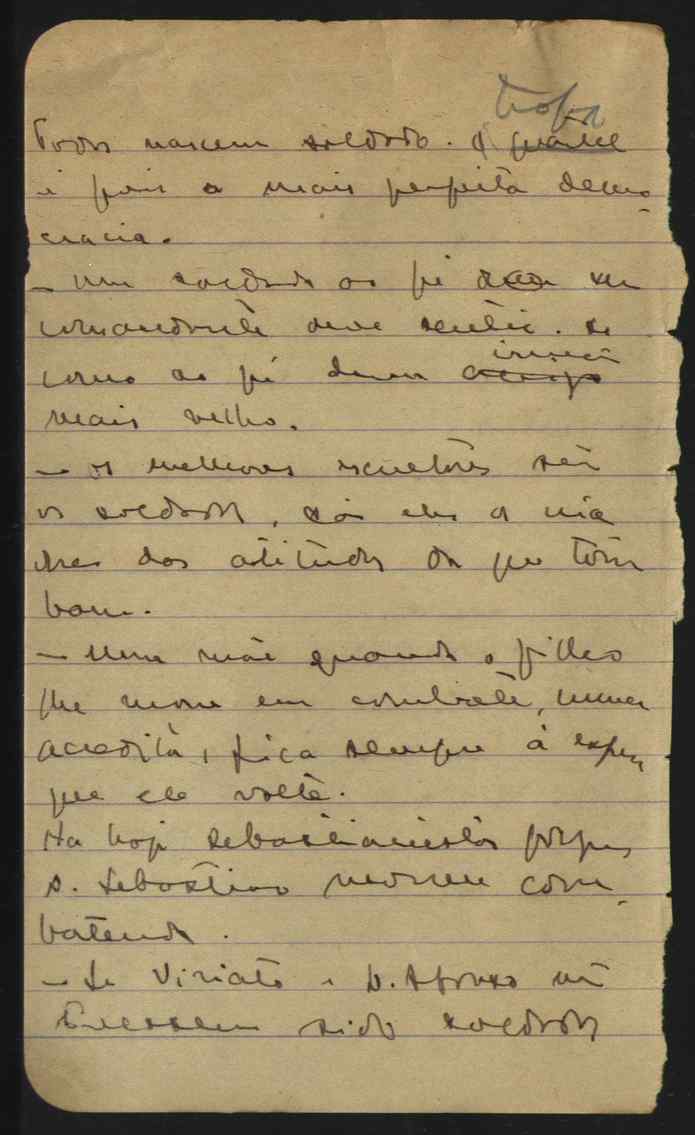 tropa
Todos nascem soldado. A quartel
é pois a mais perfeita demo-
cracia.
– Um soldado ao pé do seu
comandante deve sentir-se
como ao pé dum irmão
mais velho.
– os melhores escultores são
os soldados, são eles
das atitudes em que tom
bam.
– Uma mãe quando o filho
lhe morre em combate, nunca
acredita, fica sempre á espera
que ele volte.
Ha hoje sebastianistas porque
D. Sebastião morreu com-
batendo.
– Se Viriato e D. Afonso não
tivessem sido soldados